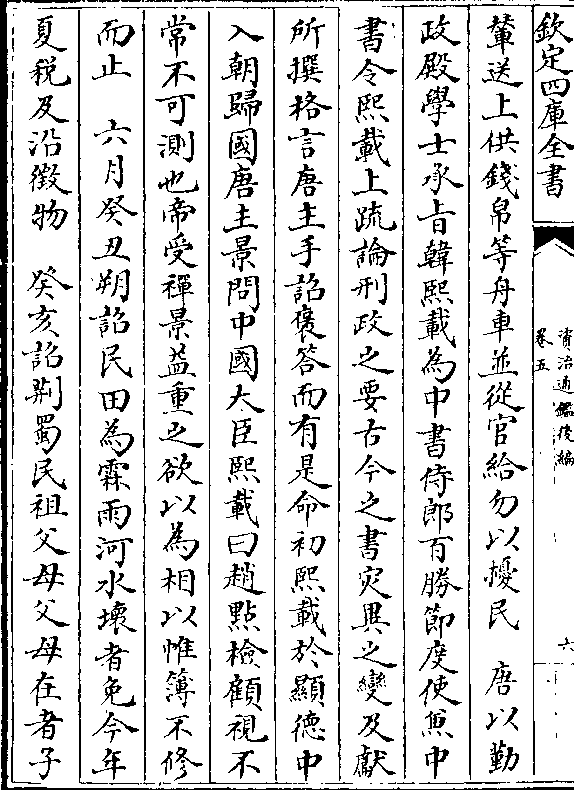 欽定四庫全書
資治通鑑後編
卷五
六
輦送上供錢帛等舟車並從官給勿以擾民　唐以勤
政殿學士承旨韓熙載為中書侍郎百勝節度使兼中
書令熙載上疏論刑政之要古今之書災異之變及獻
所撰格言唐主手詔褒答而有是命初熙載於顯德中
入朝歸國唐主景問中國大臣熙載曰趙點檢顧視不
常不可測也帝受禪景益重之欲以為相以惟簿不修
而止　六月癸丑朔詔民田為霖雨河水壞者免今年
夏稅及沿徵物　癸亥詔荆蜀民祖父母父母在者子